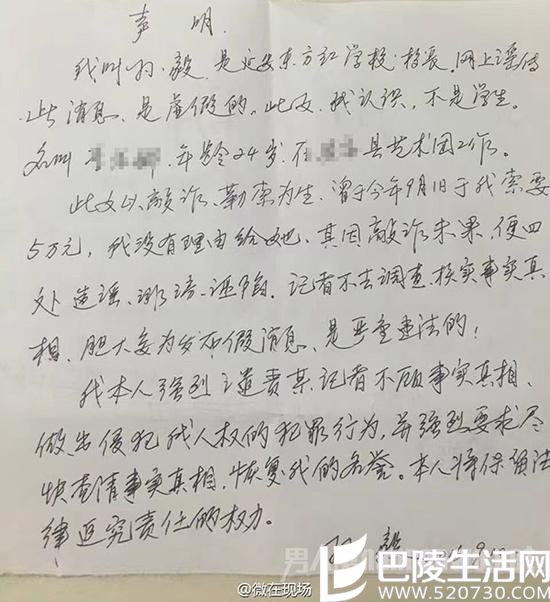 声明
我叫 毅,是延安东方红学校校长。网上谣传
此消息、是虚假的。此女、我认识、不是学生。
名叫 、年龄24岁、在 县艺术团工作。
此女以敲诈、勒索为生、曾于今年9月1日于我索要
5万元,我没有理由给她、其因敲诈未果、便四
处造谣、诽谤、诬陷。记者不去调查、核实事实真
相、胆大妄为发布假消息、是严重违法的!
我本人强烈谴责某记者不顾事实真相、
做出侵犯我人权的犯罪行为,并强烈要求尽
快查清事实真相、恢复我的名誉。本人将保留法
律追究责任的权力。
毅
@微在现场
巴陵生活网
www.520730.com